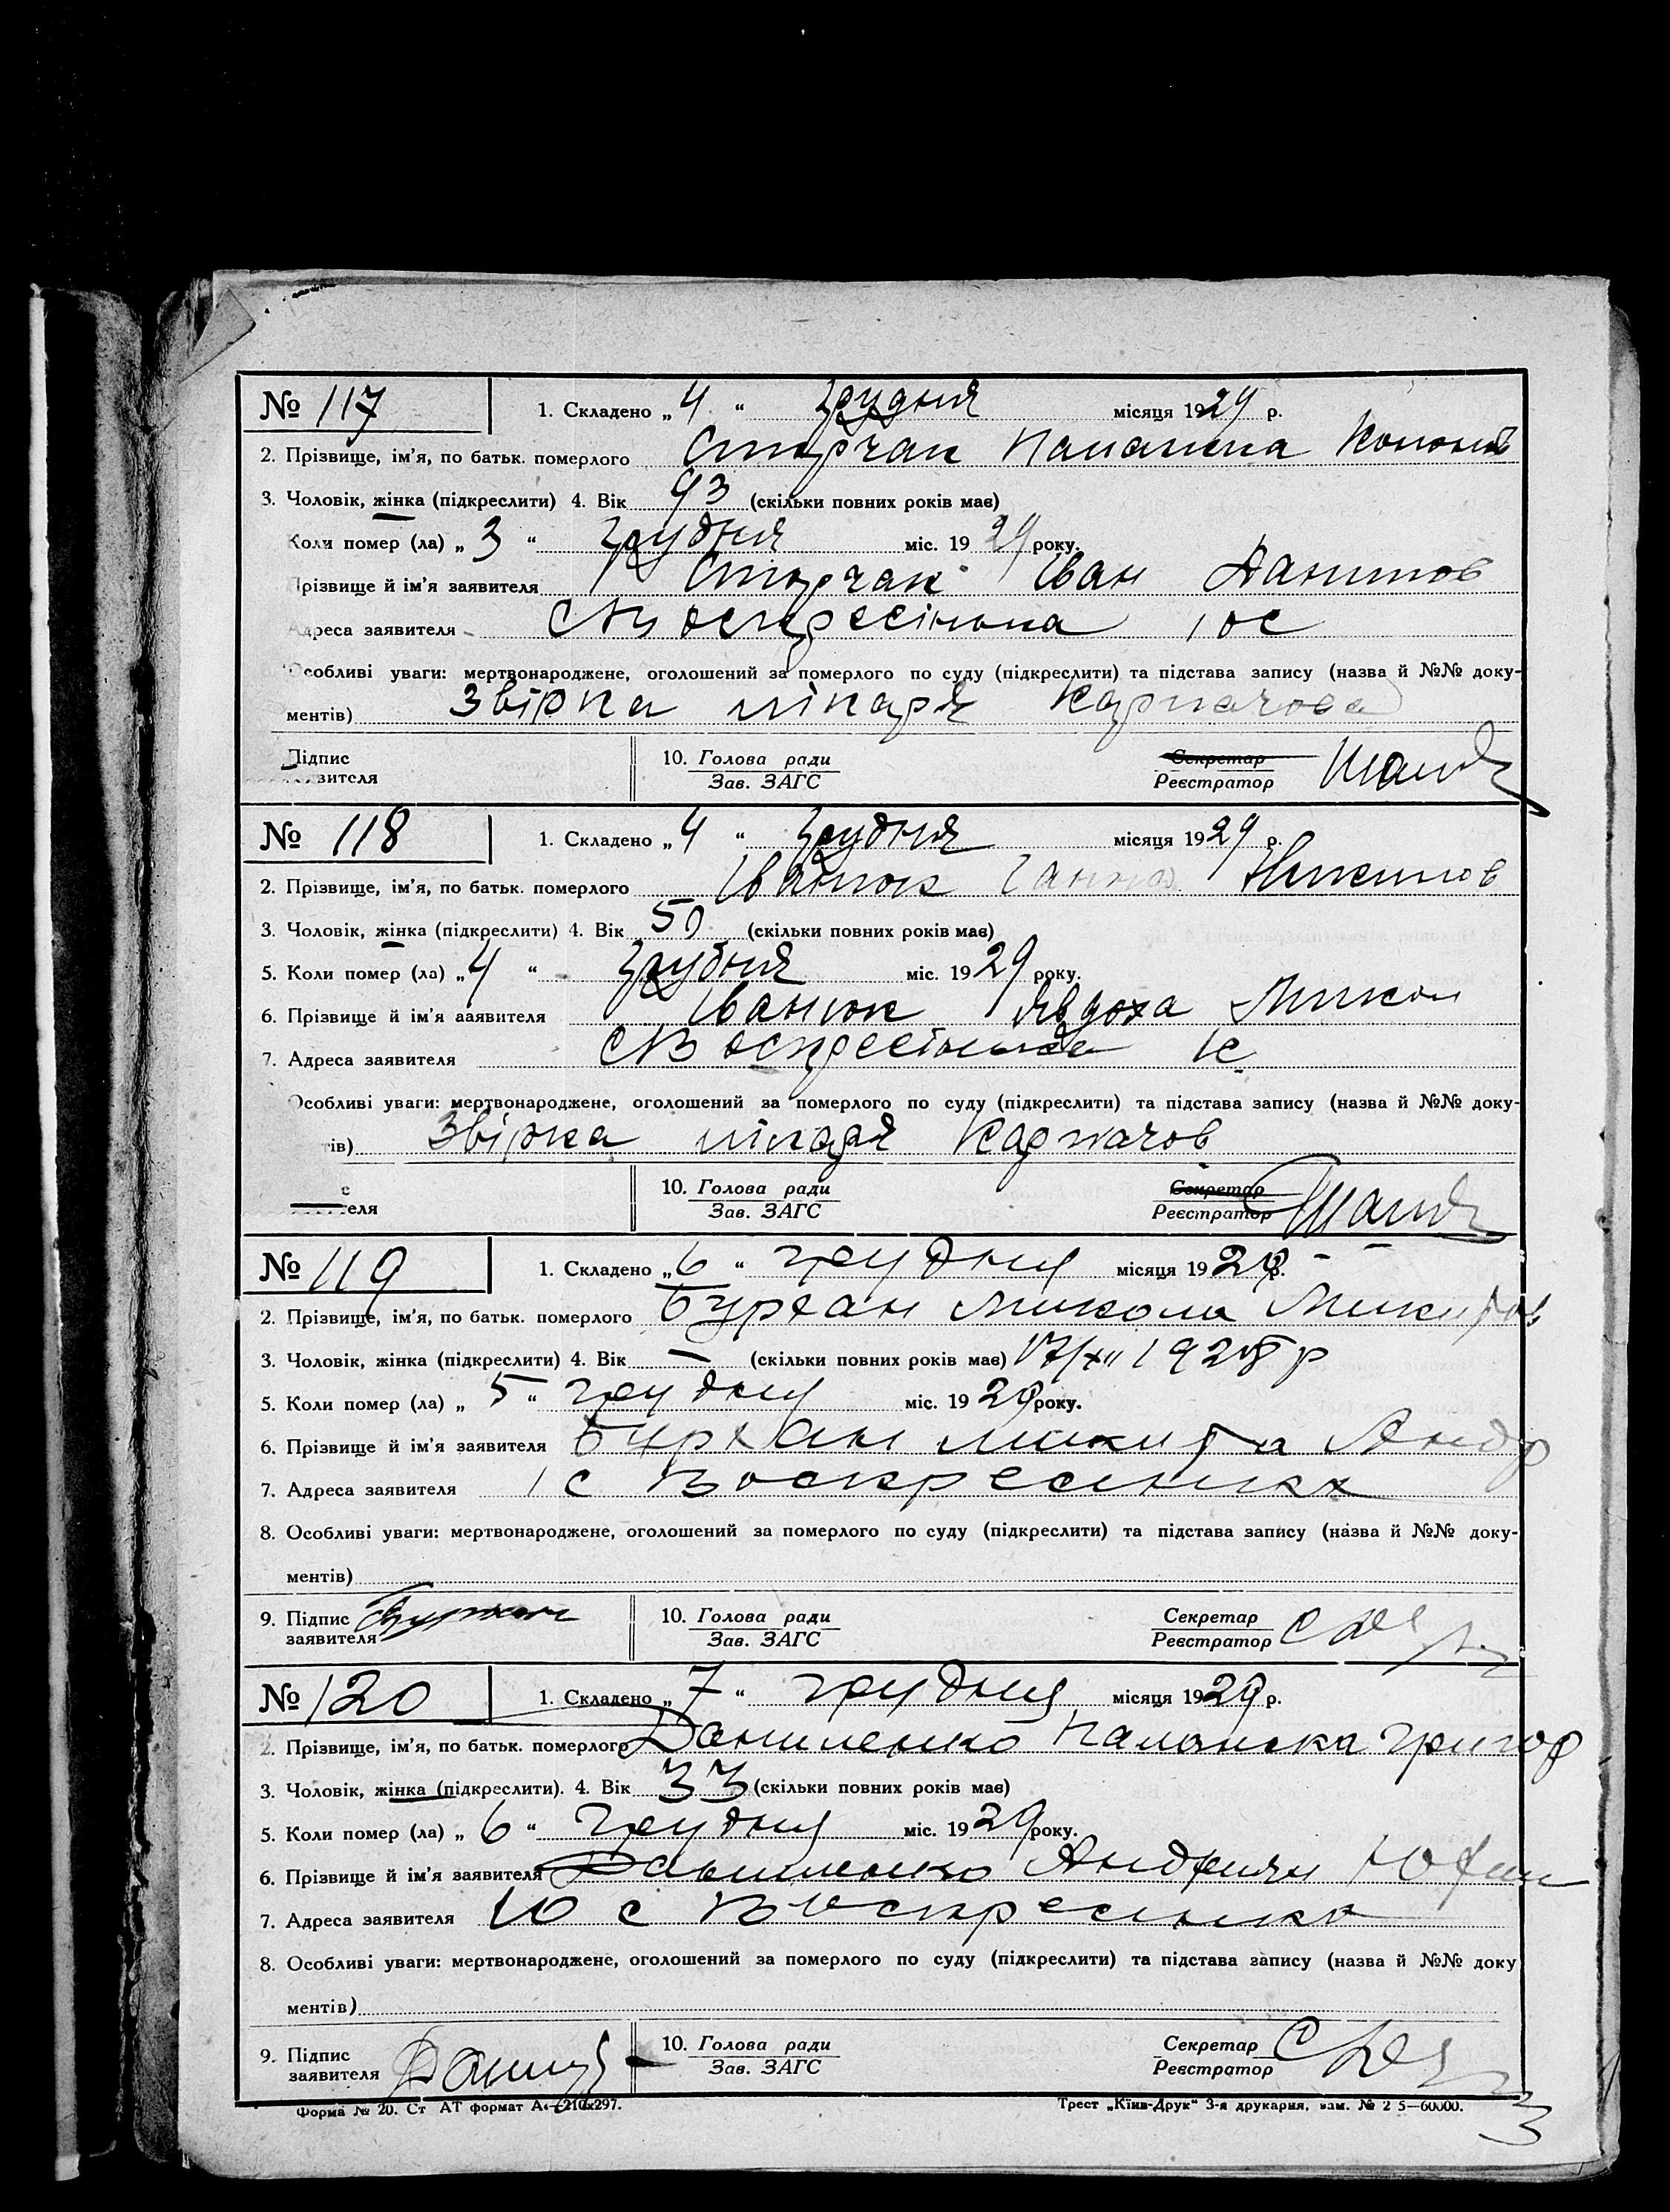 № 117 1. Складено „4“ грудня місяця 1929 р.
2. Прізвище, ім'я, по батьк. померлого Сторчак Параска
3. Чоловік, жінка (підкреслити) 4. Вік 93 (скільки повних років має)
Коли помер (ла) „3“ грудня міс. 1929 року.
Прізвище й ім'я заявителя Сторчак Іван Данилов
Адреса заявителя с Воскресінська
Особливі уваги: мертвонароджене, оголошений за померлого по суду (підкреслити) та підстава запису (назва й №№ доку-
ментів) Звірка лікаря Карпачова
Підпис 10. Голова ради Секретар
вителя Зав. ЗАГС Реєстратор
№ 118 1. Складено „4“ грудня місяця 1929 р.
2. Прізвище, ім'я, по батьк. померлого Іванюк Ганна
3. Чоловік, жінка (підкреслити) 4. Вік 50 (скільки повних років має)
5. Коли помер (ла) „4“ грудня міс. 1929 року.
6. Прізвище й ім'я заявителя Іванюк Явдоха Микол
7. Адреса заявителя с Воскресінська
Особливі уваги: мертвонароджене, оголошений за померлого по суду (підкреслити) та підстава запису (назва й №№ доку-
ів) Звірка лікаря Карпачов
с 10. Голова ради Секретар
еля Зав. ЗАГС Реєстратор
№ 119 1. Складено „6“ грудня місяця 1929 р.
2. Прізвище, ім'я, по батьк. померлого Бурхан Микола Микитов
3. Чоловік, жінка (підкреслити) 4. Вік — (скільки повних років має) 17/XII 1928 р
5. Коли помер (ла) „5“ грудня міс. 1929 року.
6. Прізвище й ім'я заявителя Бурхан Микита Андр
7. Адреса заявителя с Воскресенка
8. Особливі уваги: мертвонароджене, оголошений за померлого по суду (підкреслити) та підстава запису (назва й №№ доку-
ментів)
9. Підпис Бурхан 10. Голова ради Секретар
заявителя Зав. ЗАГС Реєстратор
№ 120 1. Складено „7“ грудня місяця 1929 р.
2. Прізвище, ім'я, по батьк. померлого Даниленко Палажка Григор
3. Чоловік, жінка (підкреслити). 4. Вік 33 (скільки повних років має)
5. Коли помер (ла) „6“ грудня міс. 1929 року.
6. Прізвище й ім'я заявителя Даниленко Андріян Юхим
7. Адреса заявителя 10 с Воскресенка
8. Особливі уваги: мертвонароджене, оголошений за померлого по суду (підкреслити) та підстава запису (назва й №№ доку
ментів)
9. Підпис 10. Голова ради Секретар
заявителя Зав. ЗАГС Реєстратор
Форма № 20. Ст АТ формат А4—210х297. Трест „Київ-Друк“ 3-я друкарня, зам. № 2 5—60000.
3